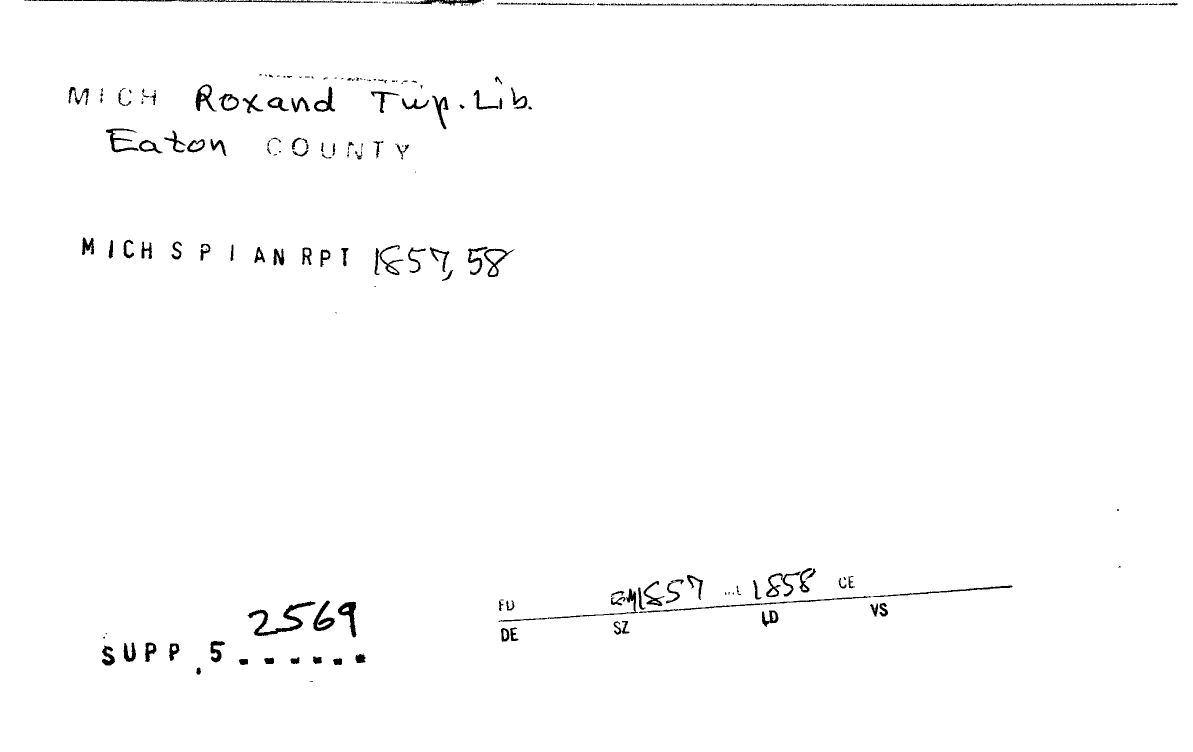 MICH Roxand Twp. Lib.
Eaton COUNTY
MICH S P I AN RPT 1857, 58
2569
SUPP.5......
FD 1857 1858 CE
DE SZ LD VS